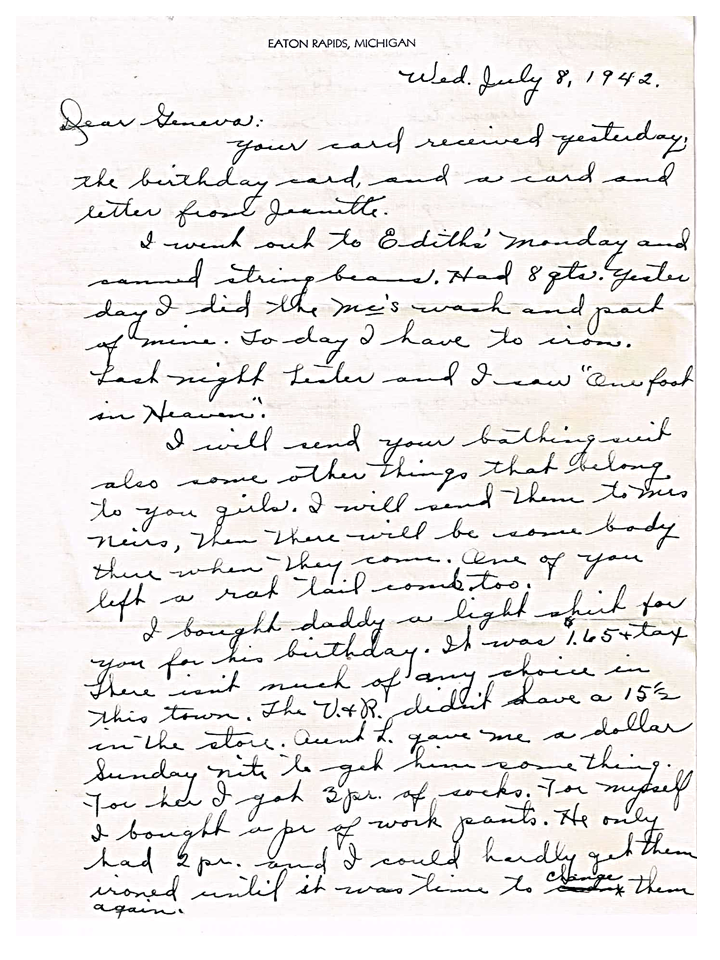 EATON RAPIDS, MICHIGAN
Wed. July 8, 1942.
Dear Geneva:
Your card received yesterday;
the birthday card, and a card and
letter from Jeanette.
I went out to Ediths' Monday and
canned string beans. Had 8 qts. Yester
day I did the Mc's wash and part
of mine. To day I have to iron.
Last night Lester and I saw "One foot
in Heaven".
I will send your bathing suit
also some other things that belong
to you girls. I will send them to Mrs
Neirs, then there will be some body
there when they come. One of you
left a rat tail comb too.
I bought daddy a light shirt for
you for his birthday. It was $1.65 + tax
There isn't much of any choice in
this town. The V. & R. didn't have a 15 1/2
in the store. Aunt L. gave me a dollar
Sunday nite to get him something.
For her I got 3 pr. of socks. For myself
I bought a pr of work pants. He only
had 2 pr. and I could hardly get them
ironed until it was time to change them
again.